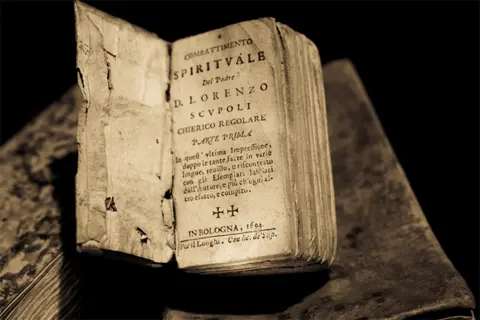 COMBATTIMENTO
SPIRITVALE
Del Padre
D. LORENZO
SCVPOLI
CHIERICO REGOLARE
PARTE PRIMA
In quest' vltima Impressione,
doppo le tante fatte in varie
lingue, reuisto, e riscontrato
con gli Esemplari lasciati
dall'Autore, e più ch'ogni al-
tro esatto, e compito.
IN BOLOGNA, 1694.
Per il Longhi. Con lic. de' Sup.